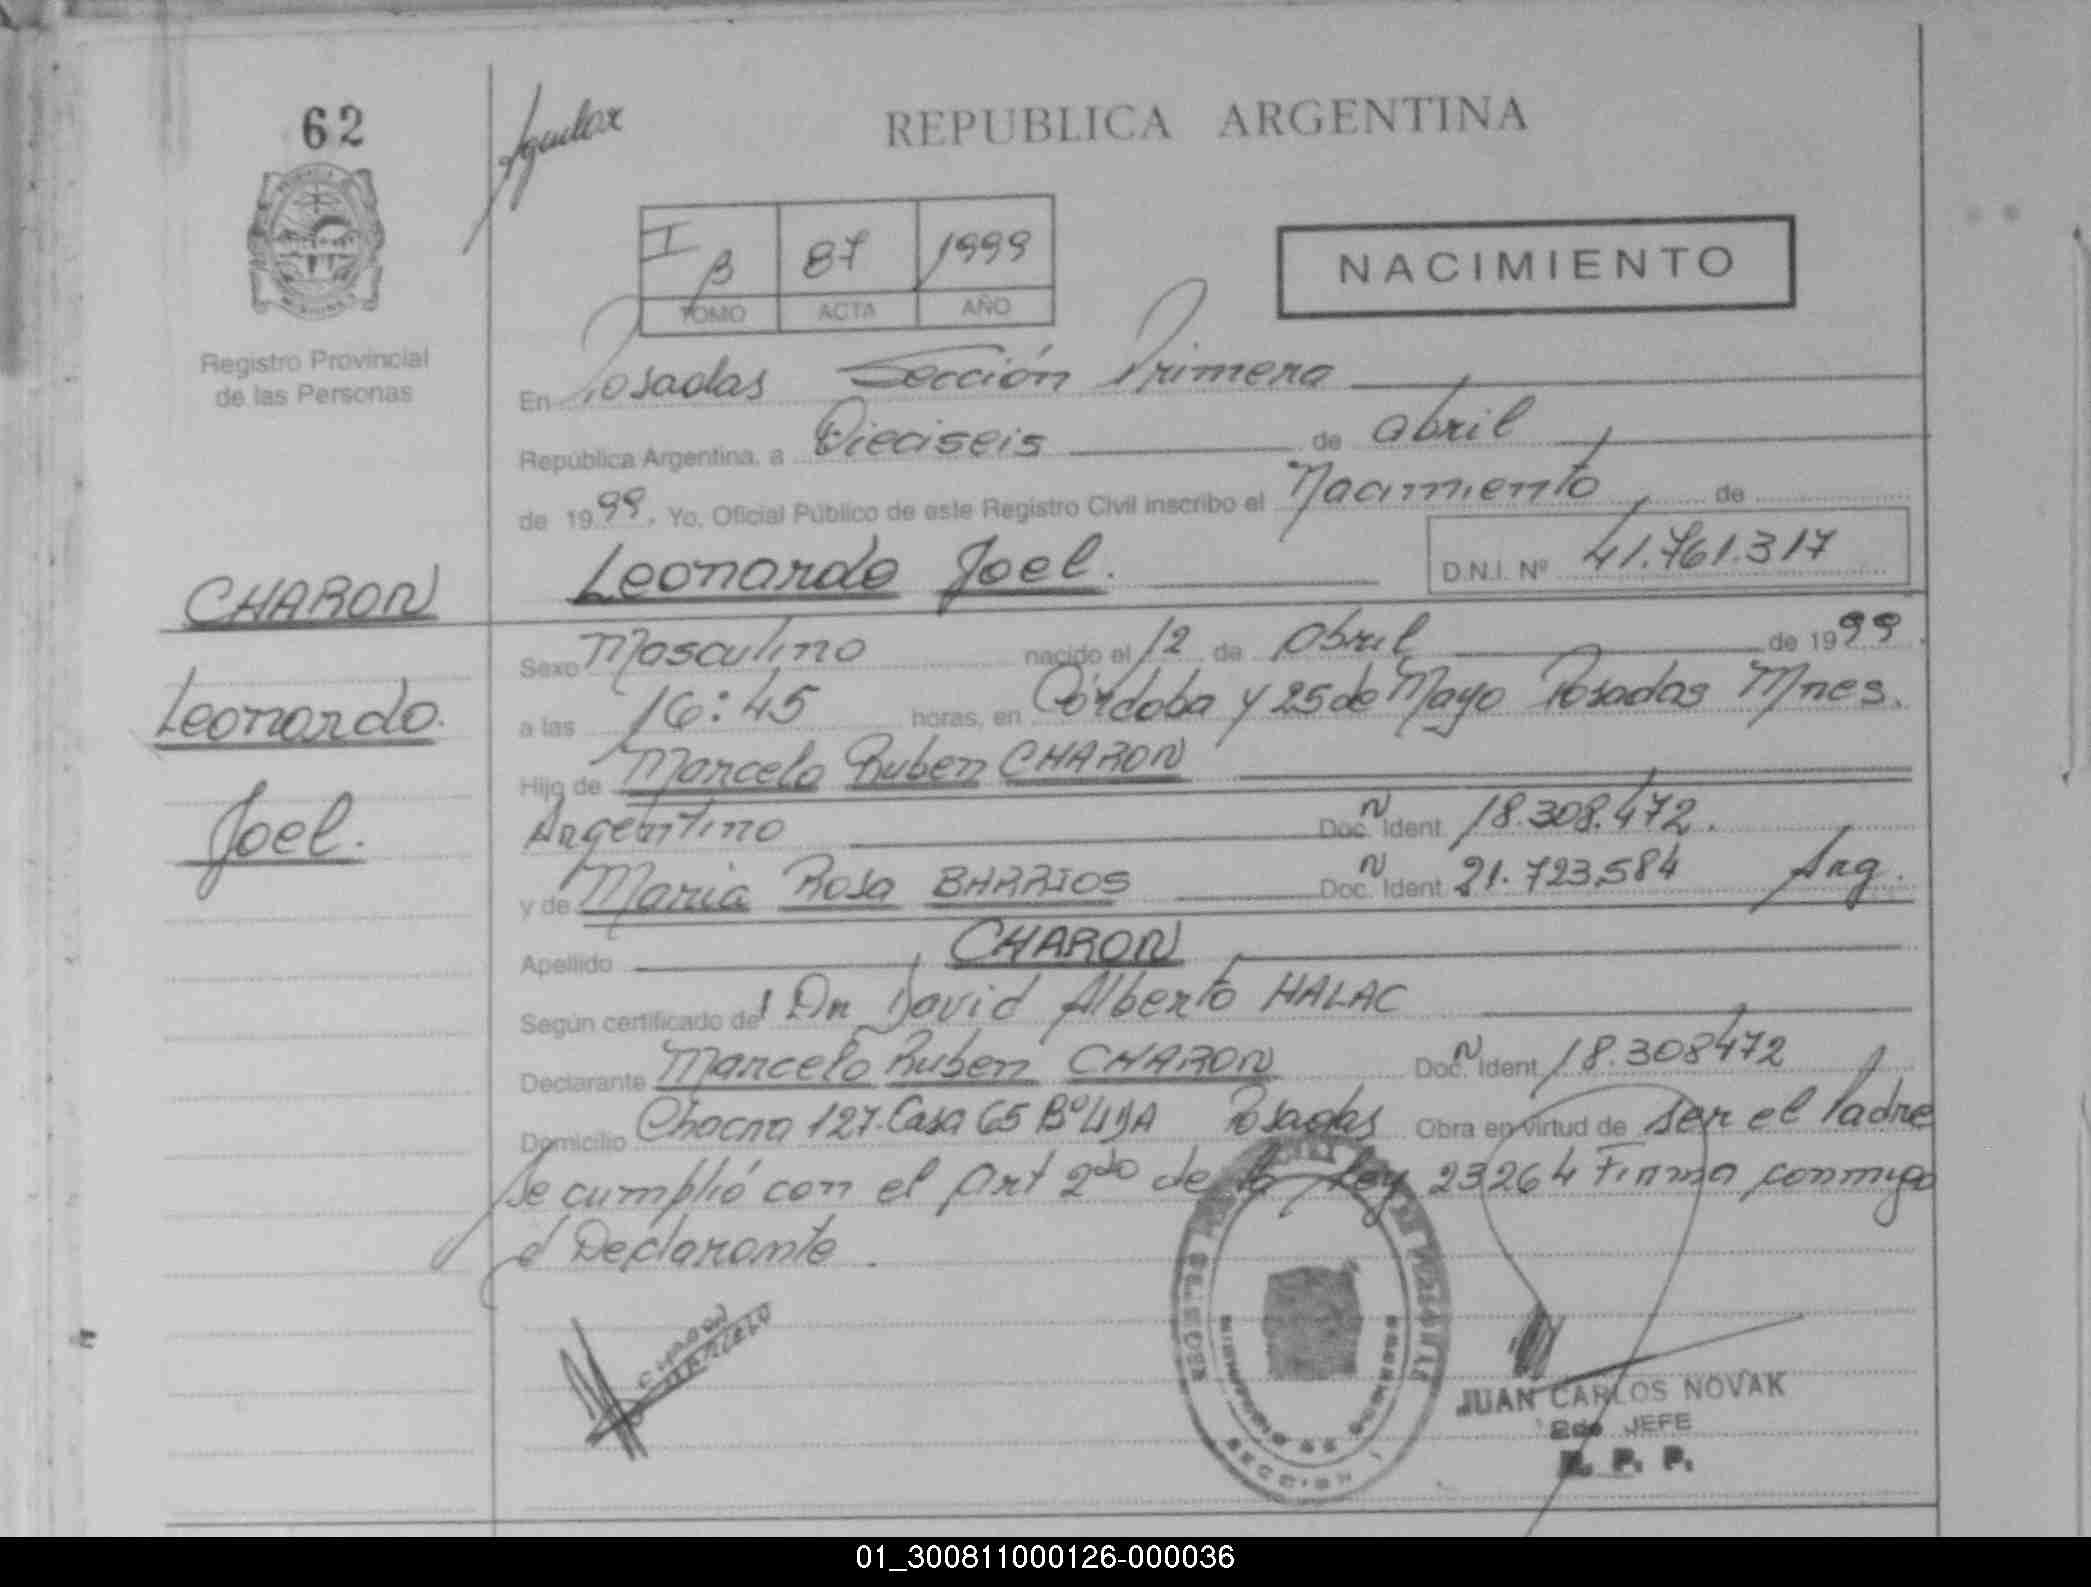 62
Aguilar
REPUBLICA ARGENTINA
I B 87 1999
TOMO ACTA AÑO
NACIMIENTO
Registro Provincial
de las Personas
En Posadas Sección Primera
República Argentina, a Dieciseis de abril
de 1999, Yo, Oficial Público de este Registro Civil inscribo el Nacimiento de
Leonardo Joel. D.N.I. Nº 41.761.317
CHARON
Leonardo.
Joel.
Sexo Masculino nacido el 12 de Abril de 1999.
a las 16:45 horas, en Córdoba y 25 de Mayo Posadas Mnes.
Hijo de Marcelo Ruben CHARON
Argentino Doc. Ident. 18.308.472.
y de Maria Rosa BARRIOS Doc. Ident. 21.723.584 Arg.
Apellido CHARON
Según certificado del Dr David Alberto HALAC
Declarante Marcelo Ruben CHARON Doc. Ident. 18.308472
Domicilio 127. Casa 65 Posadas Obra en virtud de ser el Padre
Se cumplió con el Art 2do de la Ley 23264 Firma conmigo
el Declarante.
CHARON
MARCELO
SECCION 1
JUAN CARLOS NOVAK
2do JEFE
R. P. P.
01_300811000126-000036